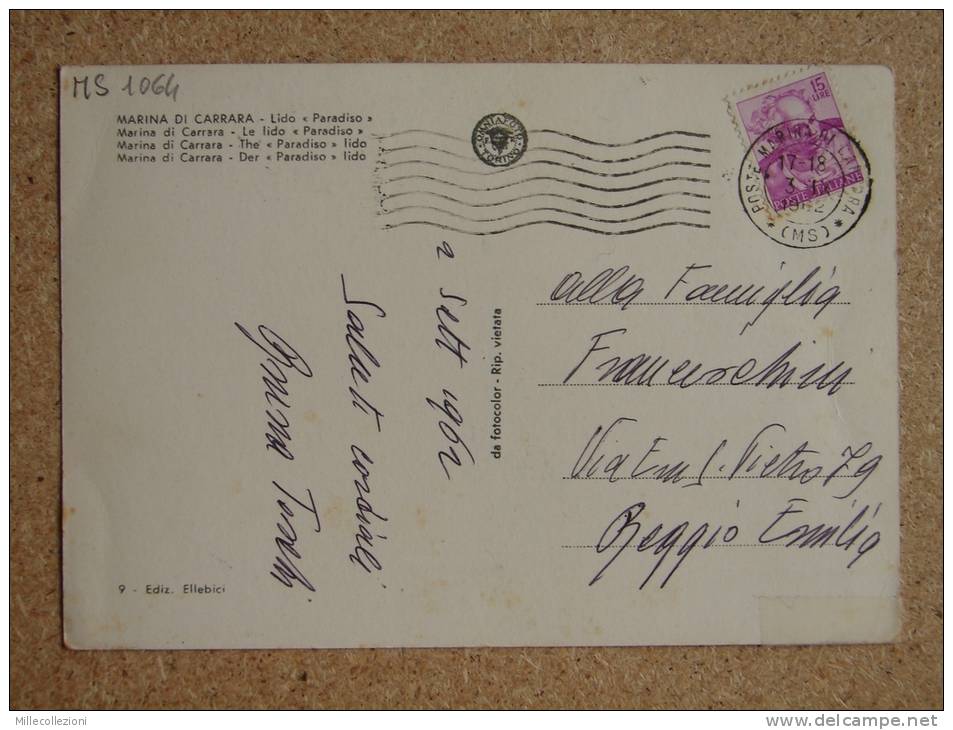 MS 1064
MARINA DI CARRARA - Lido « Paradiso »
Marina di Carrara - Le lido « Paradiso »
Marina di Carrara - The « Paradiso » lido
Marina di Carrara - Der « Paradiso » lido
OMNIAFOTO
TORINO
15
LIRE
POSTE ITALIANE
POSTE MARINA DI CARRARA
17-18
3
1962
* (MS) *
2 sett 1962
Saluti cordiali
da fotocolor - Rip. vietata
alla Famiglia
Franceschini
Via Em. S. Pietro 79
Reggio Emilia
9 - Ediz. Ellebici
Millecollezioni
delcampe.net